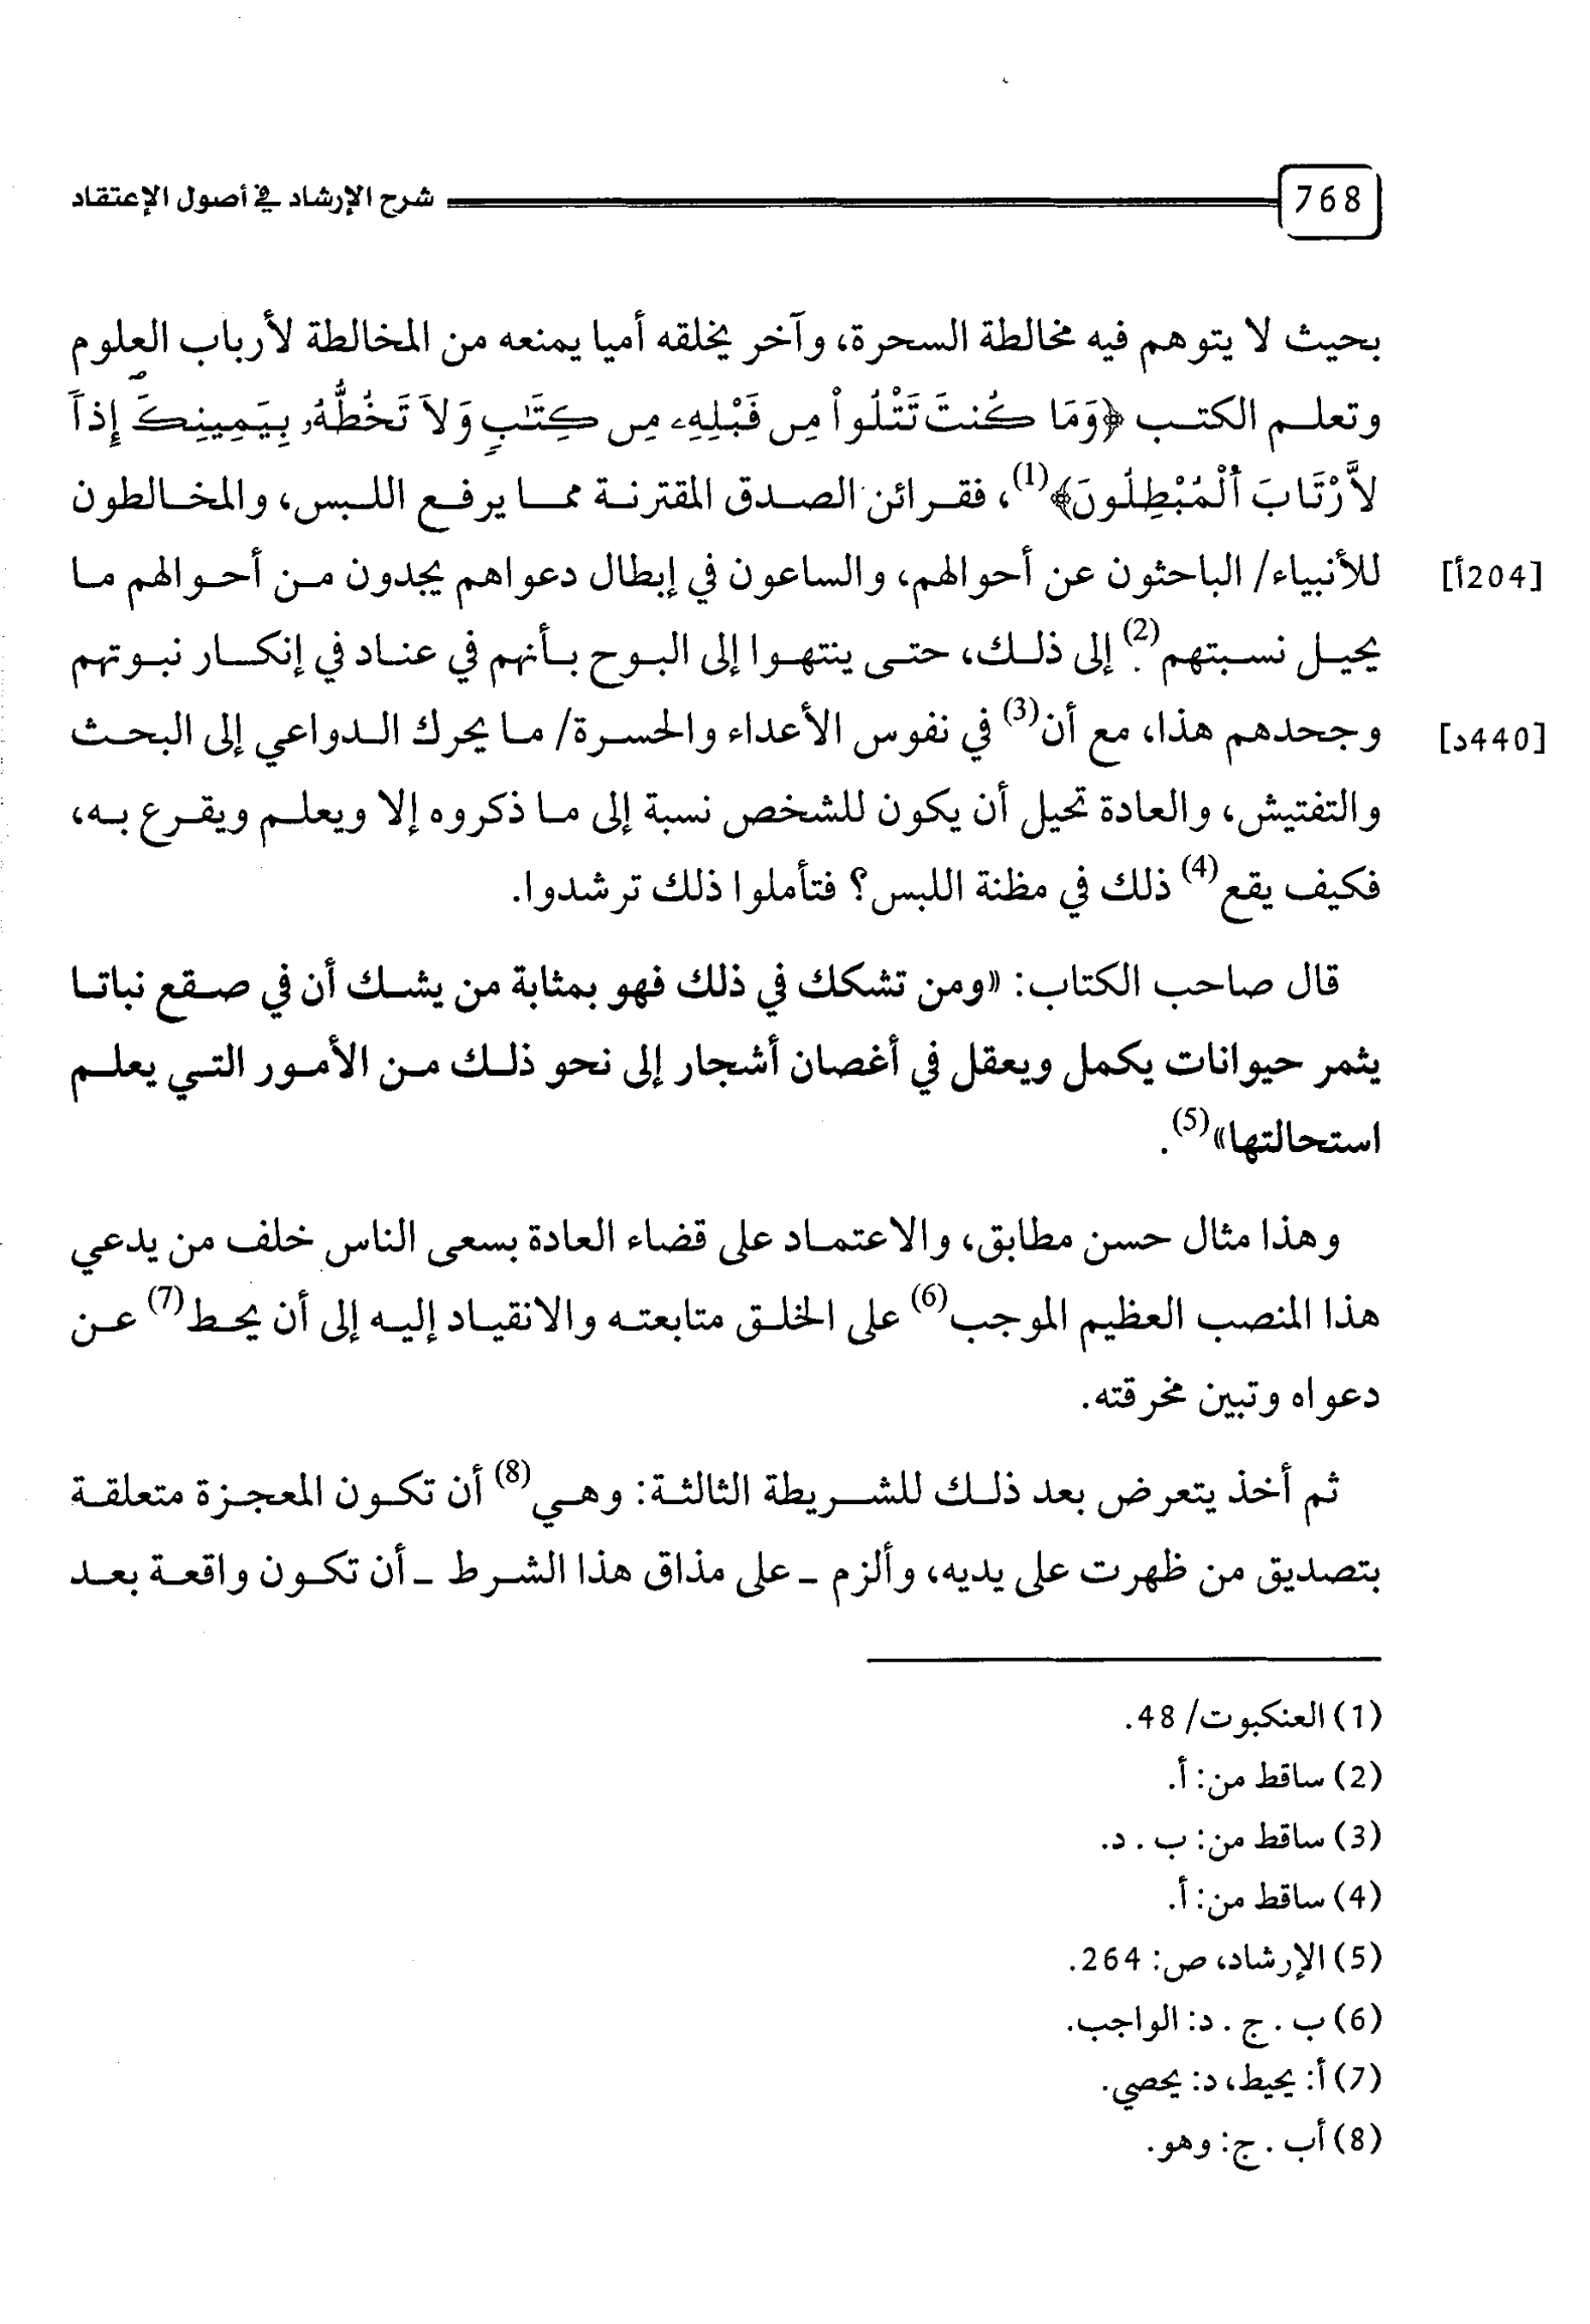 768 شرح الإرشاد في أصول الإعتقاد
بحيث لا يتوهم فيه مخالطة السحرة، وآخر يخلقه أميا يمنعه من المخالطة لأرباب العلوم
وتعلم الكتب ﴿وَمَا كُنتَ تَتْلُواْ مِن قَبْلِهِۦ مِن كِتَٰبٍ وَلاَ تَخُطُّهُۥ بِيَمِينِكَ إِذاً
لاَّرْتَابَ اَلْمُبْطِلُونَ﴾(1)، فقرائن الصدق المقترنة مما يرفع اللبس، والمخالطون
للأنبياء/ الباحثون عن أحوالهم، والساعون في إبطال دعواهم يجدون من أحوالهم ما [204أ]
يحيل نسبتهم(2) إلى ذلك، حتى ينتهوا إلى البوح بأنهم في عناد في إنكار نبوتهم
وجحدهم هذا، مع أن(3) في نفوس الأعداء والحسرة/ ما يحرك الدواعي إلى البحث [440د]
والتفتيش، والعادة تحيل أن يكون للشخص نسبة إلى ما ذكروه إلا ويعلم ويقرع به،
فكيف يقع(4) ذلك في مظنة اللبس؟ فتأملوا ذلك ترشدوا.
قال صاحب الكتاب: «ومن تشكك في ذلك فهو بمثابة من يشك أن في صقع نباتا
يثمر حيوانات يكمل ويعقل في أغصان أشجار إلى نحو ذلك من الأمور التي يعلم
استحالتها»(5).
وهذا مثال حسن مطابق، والاعتماد على قضاء العادة بسعى الناس خلف من يدعي
هذا المنصب العظيم الموجب(6) على الخلق متابعته والانقياد إليه إلى أن يحط(7) عن
دعواه وتبين مخرقته.
ثم أخذ يتعرض بعد ذلك للشريطة الثالثة: وهي(8) أن تكون المعجزة متعلقة
بتصديق من ظهرت على يديه، وألزم ـ على مذاق هذا الشرط ـ أن تكون واقعة بعد
(1) العنكبوت/ 48.
(2) ساقط من: أ.
(3) ساقط من: ب . د.
(4) ساقط من: أ.
(5) الإرشاد، ص: 264.
(6) ب . ج . د: الواجب.
(7) أ: يحيط، د: يحصي.
(8) أب . ج: وهو.